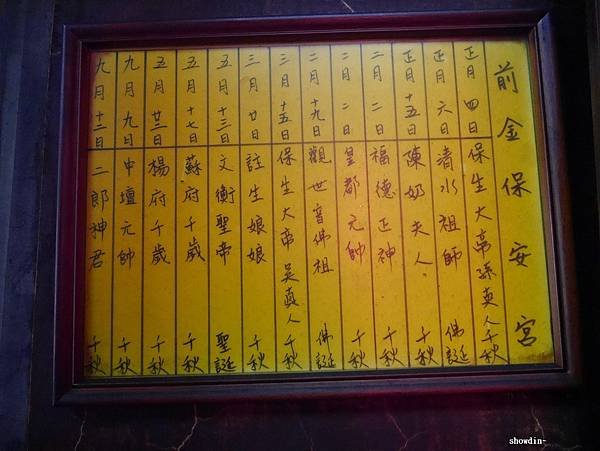 前金保安宮
正月四日 保生大帝孫真人千秋
正月六日 清水祖師 佛誕
正月十五日 陳奶夫人 千秋
二月二日 福德正神 千秋
二月二日 皇都元帥 千秋
二月十九日 觀世音佛祖 佛誕
三月十五日 保生大帝吳真人 千秋
三月廿日 註生娘娘 千秋
五月十三日 文衡聖帝 聖誕
五月十七日 蘇府千歲 千秋
五月廿三日 楊府千歲 千秋
九月九日 中壇元帥 千秋
九月十三日 二郎神君 千秋
showdin-